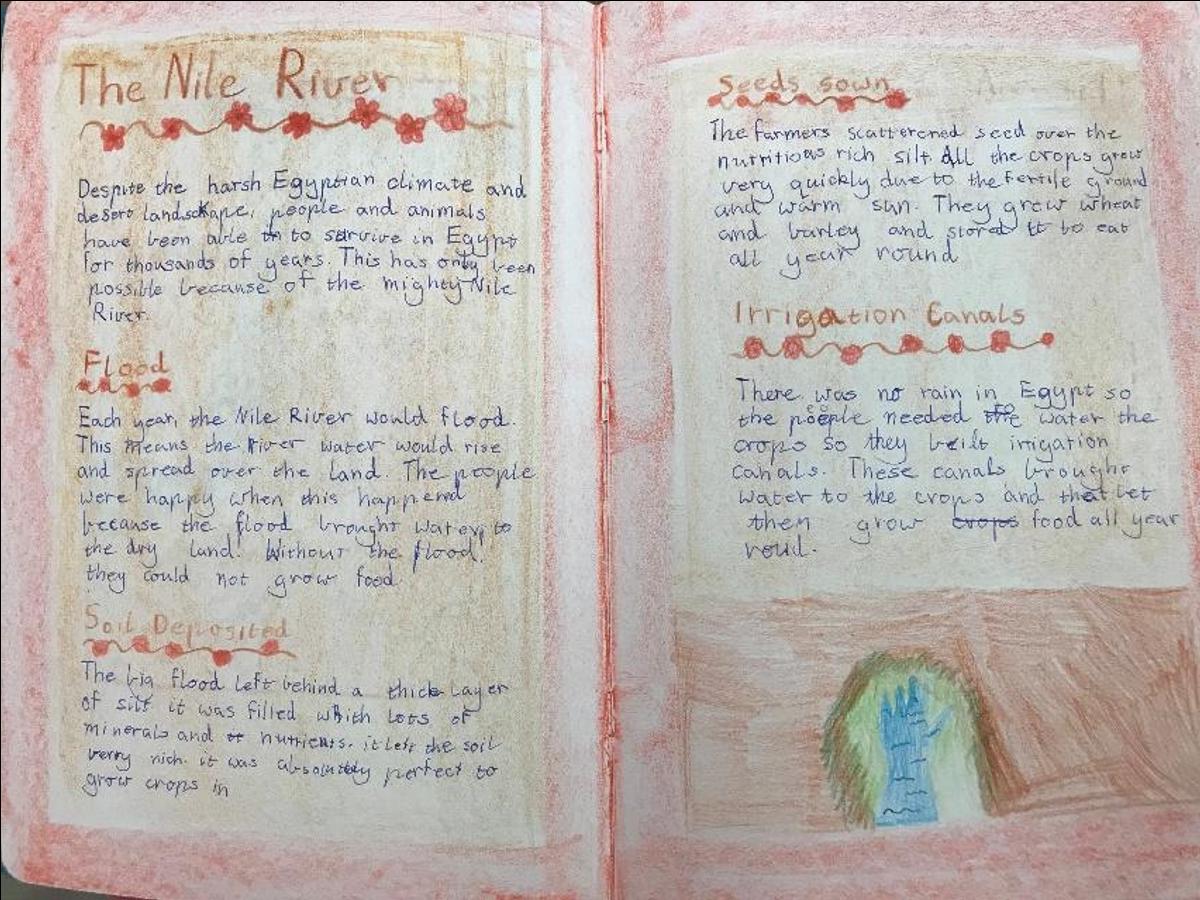 The Nile River
Despite the harsh Egyptian climate and
desert landsckape, people and animals
have been able to survive in Egypt
for thousands of years. This has only been
possible because of the mighty Nile
River.
Flood
Each year, the Nile River would flood.
This means the River water would rise
and spread over the land. The people
were happy when this happend
because the flood brought water, to
the dry land. Without the flood,
they could not grow food.
Soil Deposited
The big flood left behind a thick layer
of silt it was filled which lots of
minerals and nutrients. it left the soil
verry rich. it was absolutely perfect to
grow crops in
Seeds sown
The farmers scatterened seed over the
nutritious rich silt. All the crops grew
very quickly due to the fertile ground
and warm sun. They grew wheat
and barley and stored it to eat
all year round
Irrigation Canals
There was no rain in Egypt so
the people needed to water the
crops so they built irrigation
canals. These canals brought
water to the crops and that let
them grow crops food all year
roud.